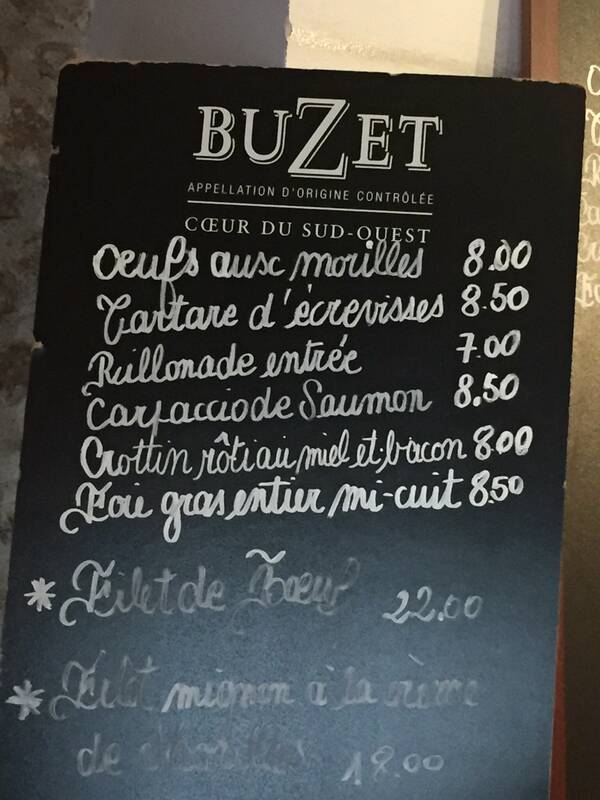 BUZET
APPELLATION D'ORIGINE CONTRÔLÉE
CŒUR DU SUD-OUEST
Oeufs aux morilles 8.00
Tartare d'écrevisses 8.50
Rillonade entrée 7.00
Carpaccio de Saumon 8.50
Crottin rôti au miel et bacon 8.00
Foie gras entier mi-cuit 8.50
* Filet de Boeuf 22.00
* Filet mignon à la crème
de Morilles 18.00